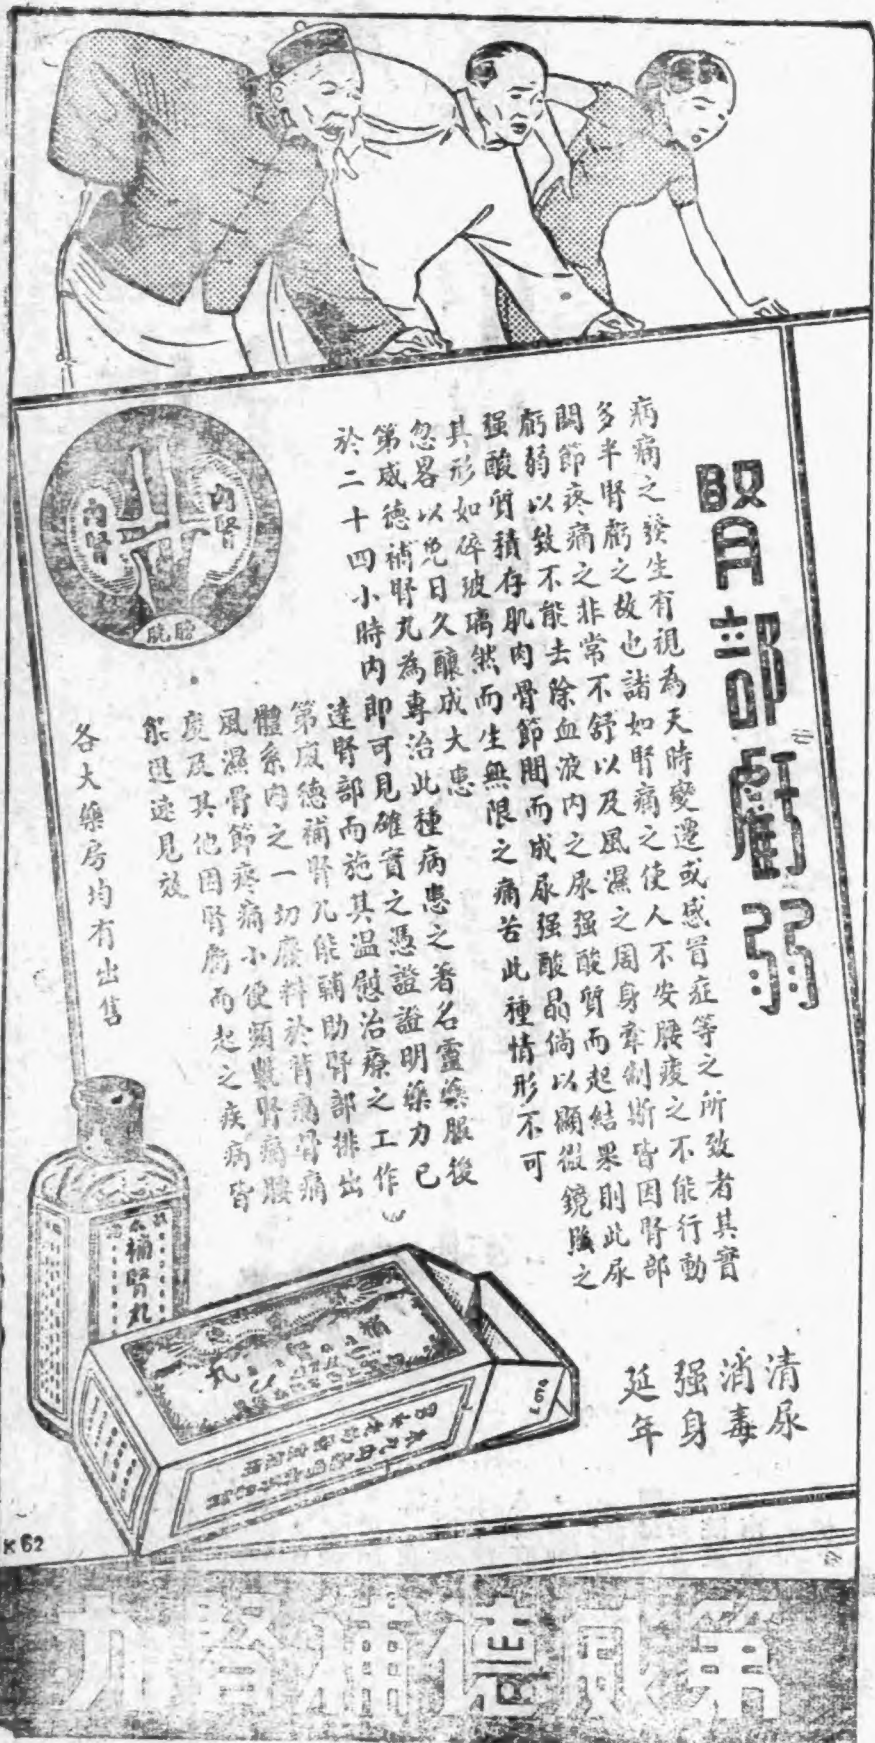 腎部虧弱
病痛之發生有視為天時變遷或感冒症等之所致者其實
多半腎虧之故也諸如腎痛之使人不安腰痠之不能行動
關節疼痛之非常不舒以及風濕之周身牽制斯皆因腎部
虧弱以致不能去除血液內之尿强酸質而起結果則此尿
强酸質積存肌肉骨節間而成尿强酸晶倘以顯微鏡驗之
其形如碎玻璃然而生無限之痛苦此種情形不可
忽畧以免日久釀成大患
第威德補腎丸為專治此種病患之著名靈藥服後
於二十四小時內即可見確實之憑證證明藥力已
達腎部而施其溫慰治療之工作
第威德補腎丸能輔助腎部排出
體系內之一切廢料於背痛骨痛
風濕骨節疼痛小便頻數腎痛腰
痠及其他因腎虧而起之疾病皆
能迅速見效
各大藥房均有出售
內腎
內腎
膀胱
清尿
消毒
强身
延年
補腎丸
丸
K 62
第威德補腎丸